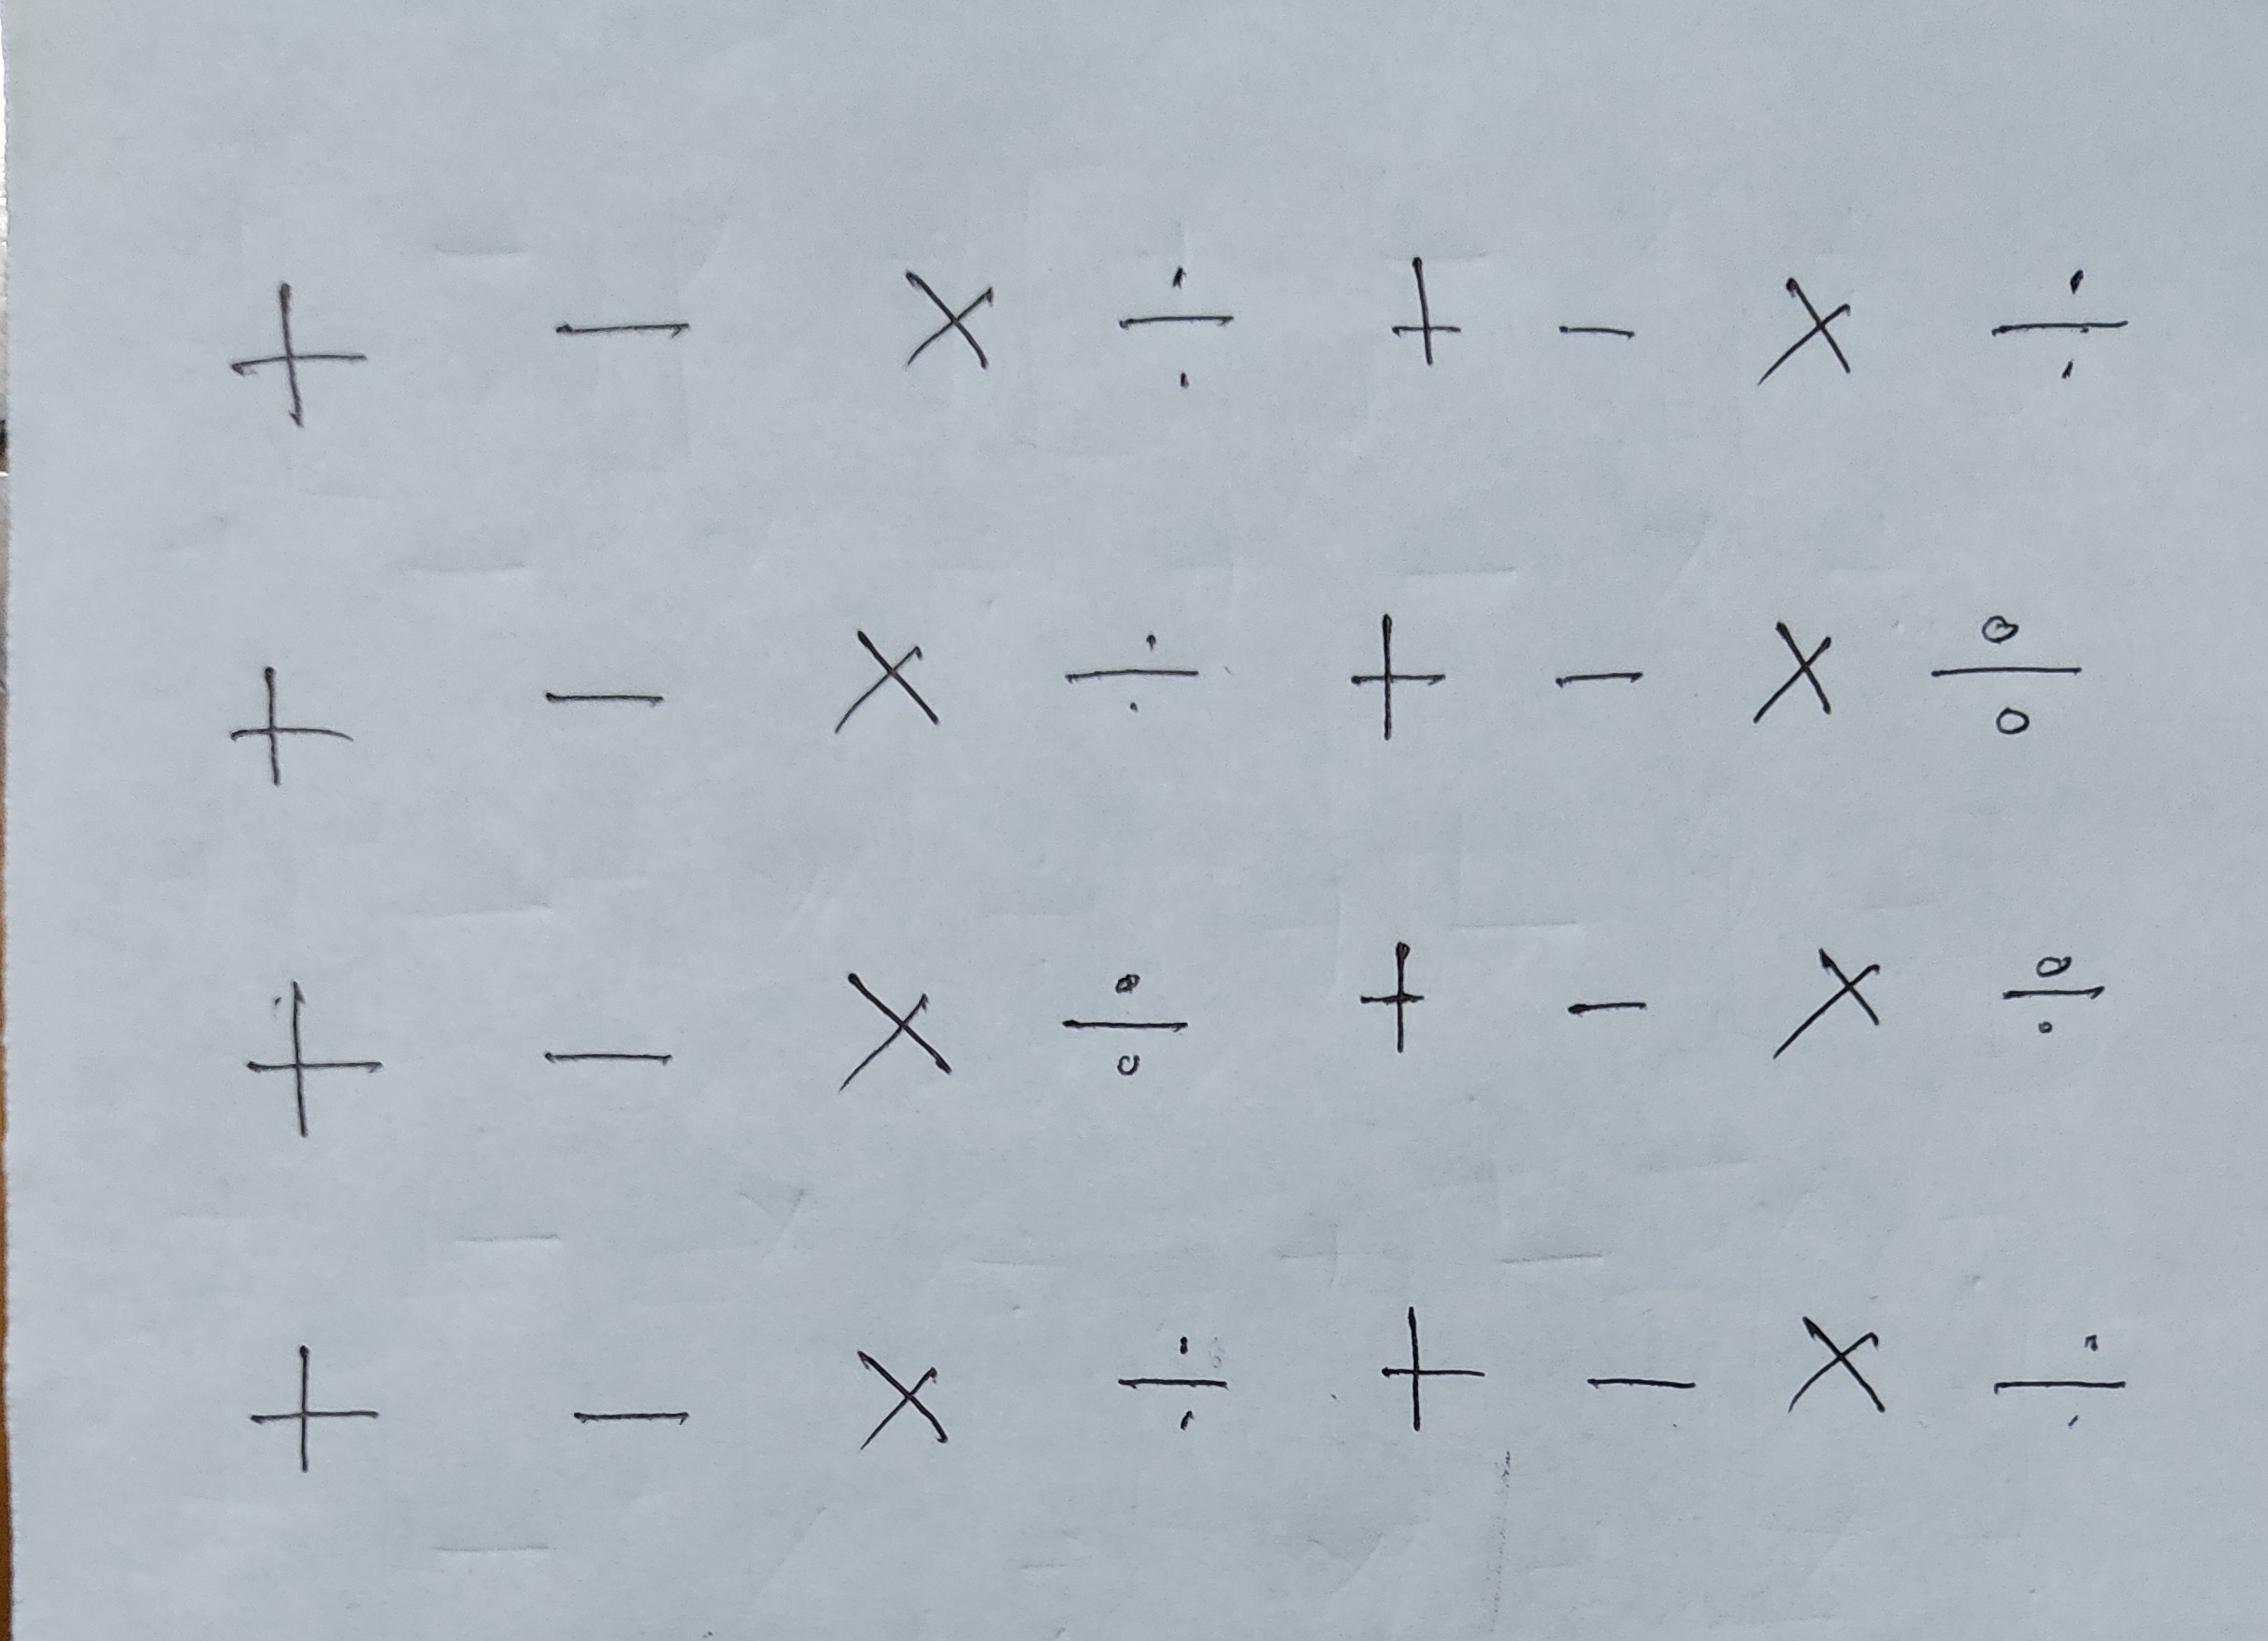 + − × ÷ + − × ÷
+ − × ÷ + − × ÷
+ − × ÷ + − × ÷
+ − × ÷ + − × ÷